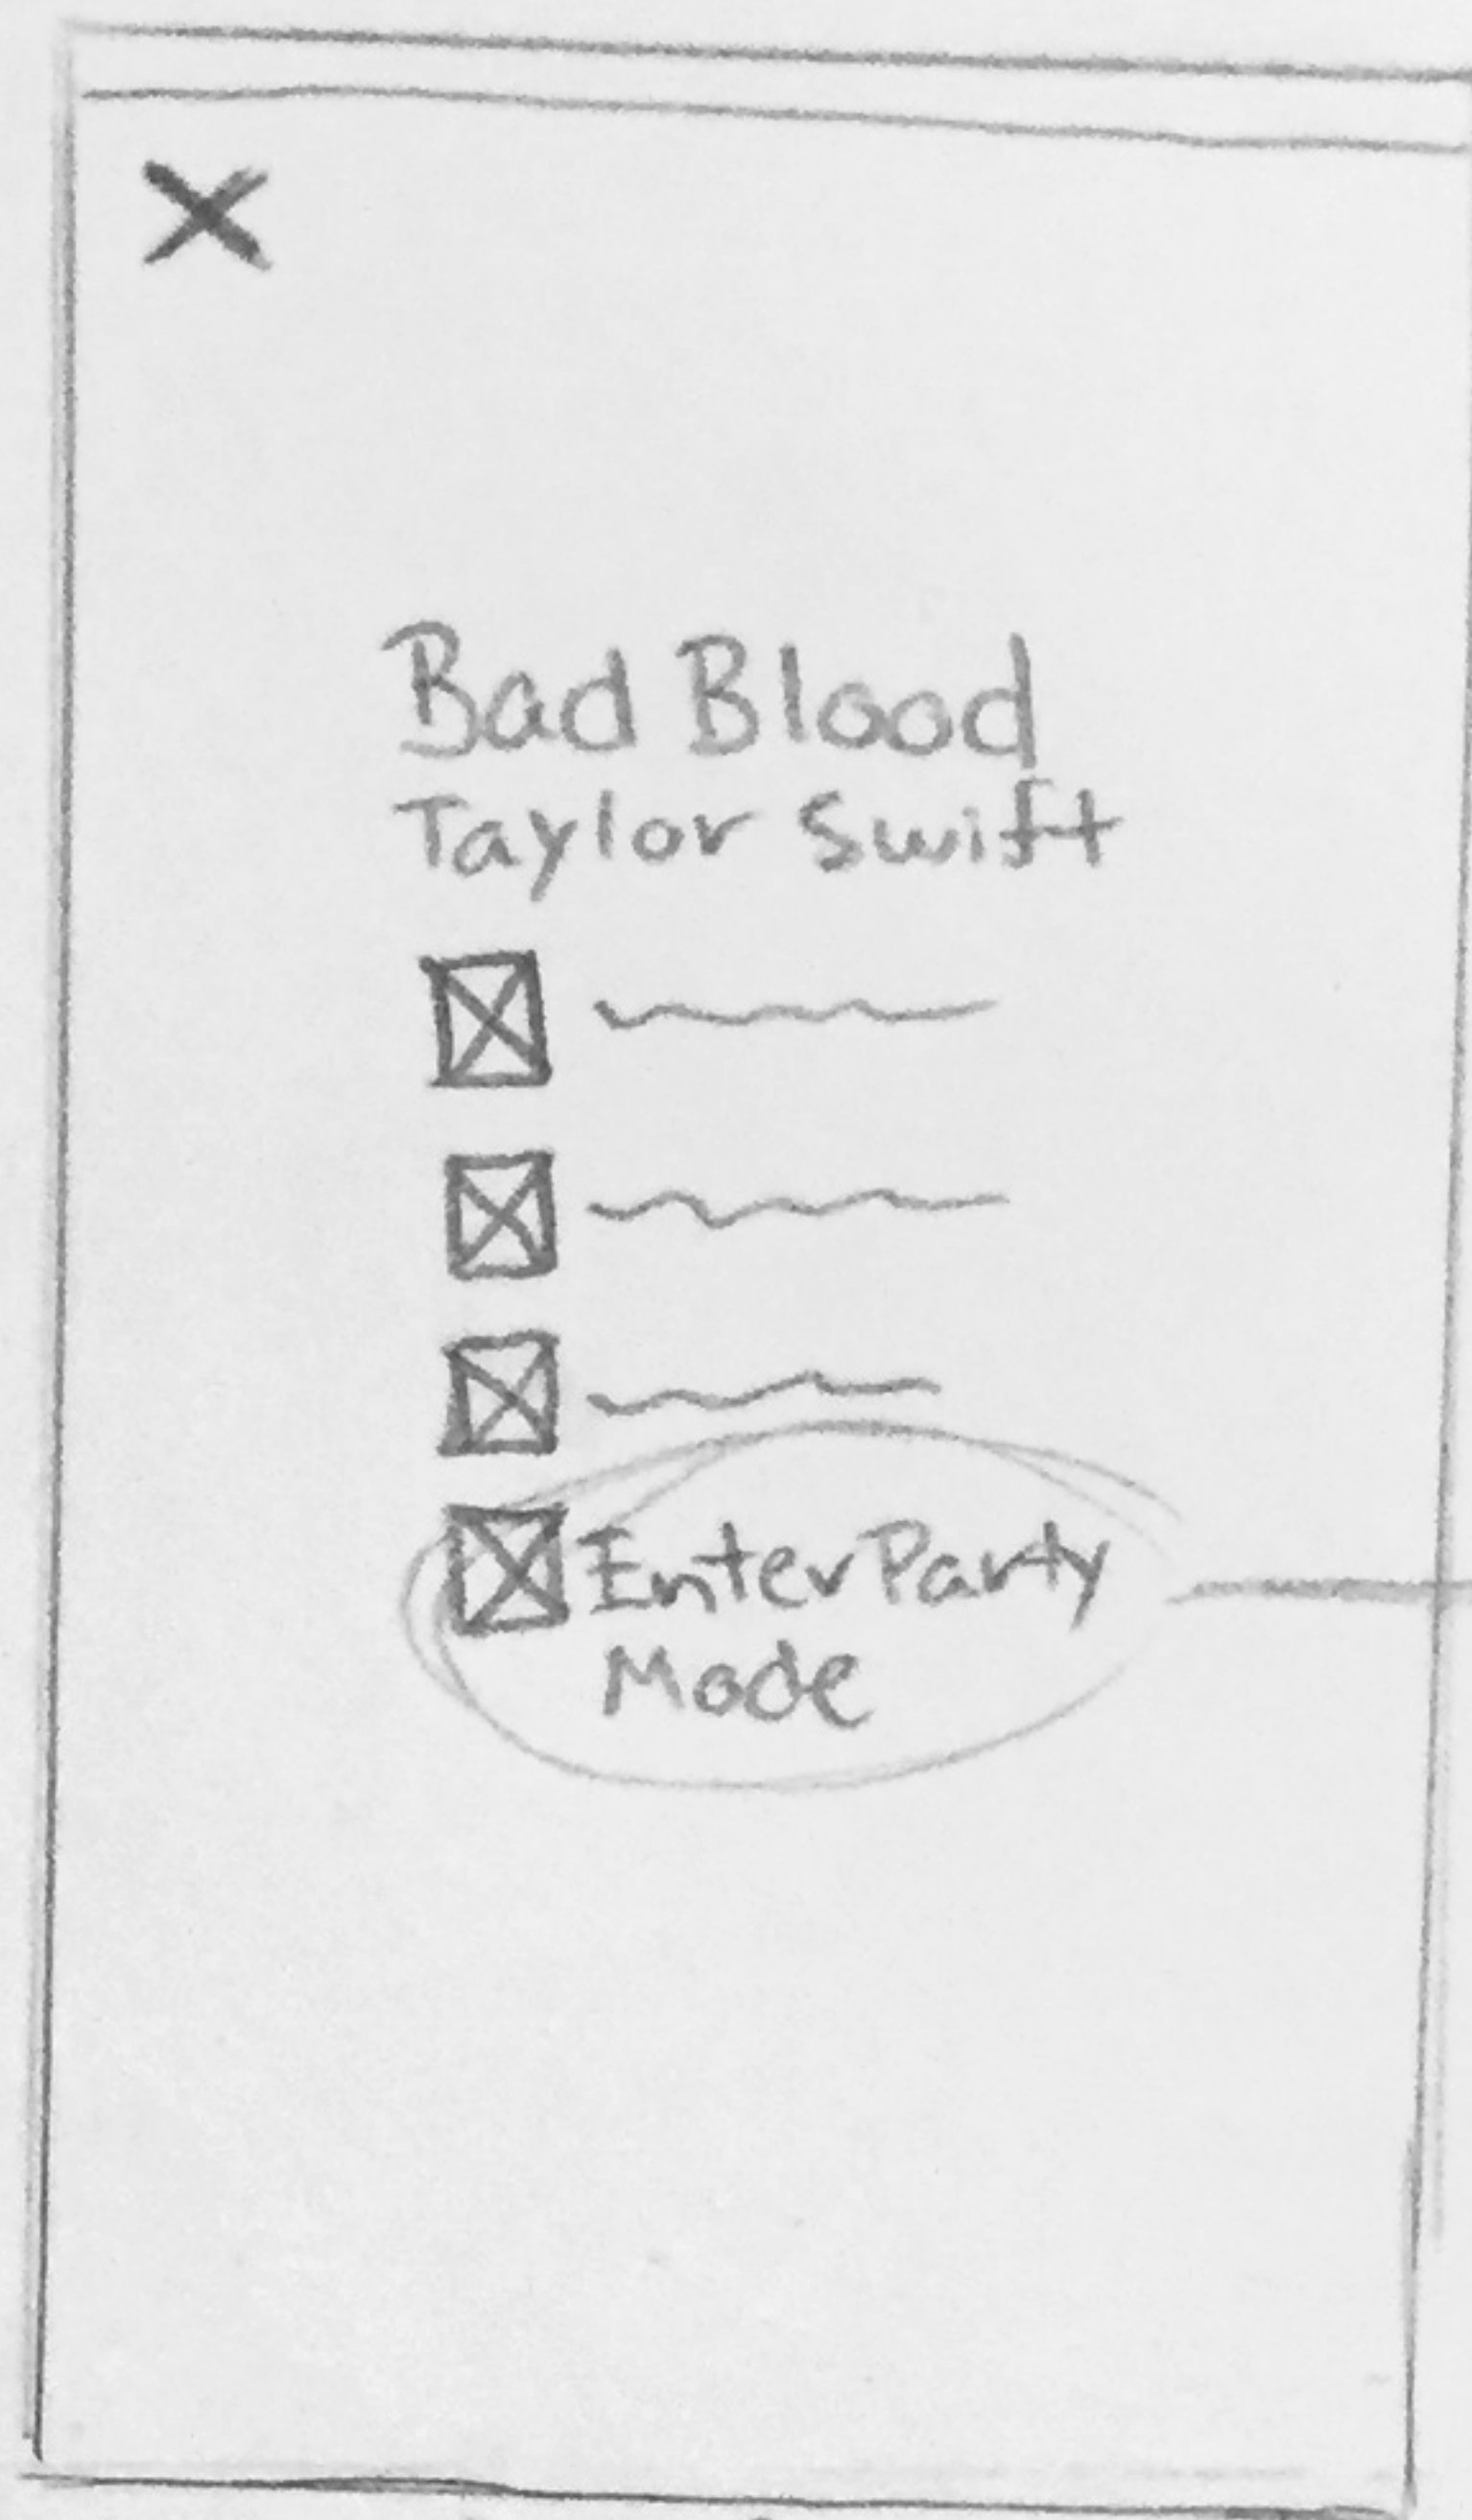 Bad Blood
Taylor Swift
Enter Party
Mode